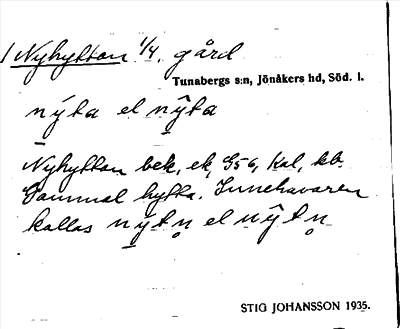 Nyhyttan 1/4, gård
Tunabergs s:n, Jönåkers hd, Söd. l.
nýta el nŷta
Nyhyttan bek, ek, G56, Kal, kb.
Gammal hytta. Innehavaren
kallas nýtn̥ el nŷtn̥
STIG JOHANSSON 1935.